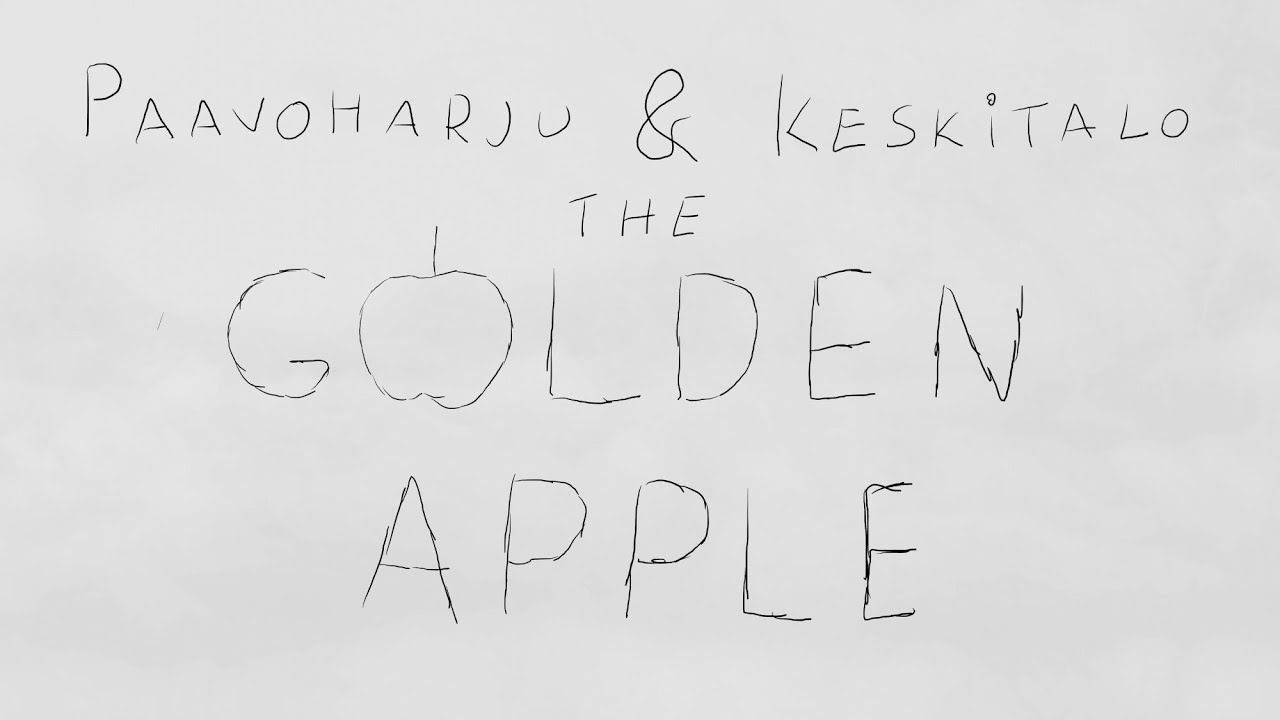 PAAVOHARJU & KESKiTALO
THE
GOLDEN
APPLE